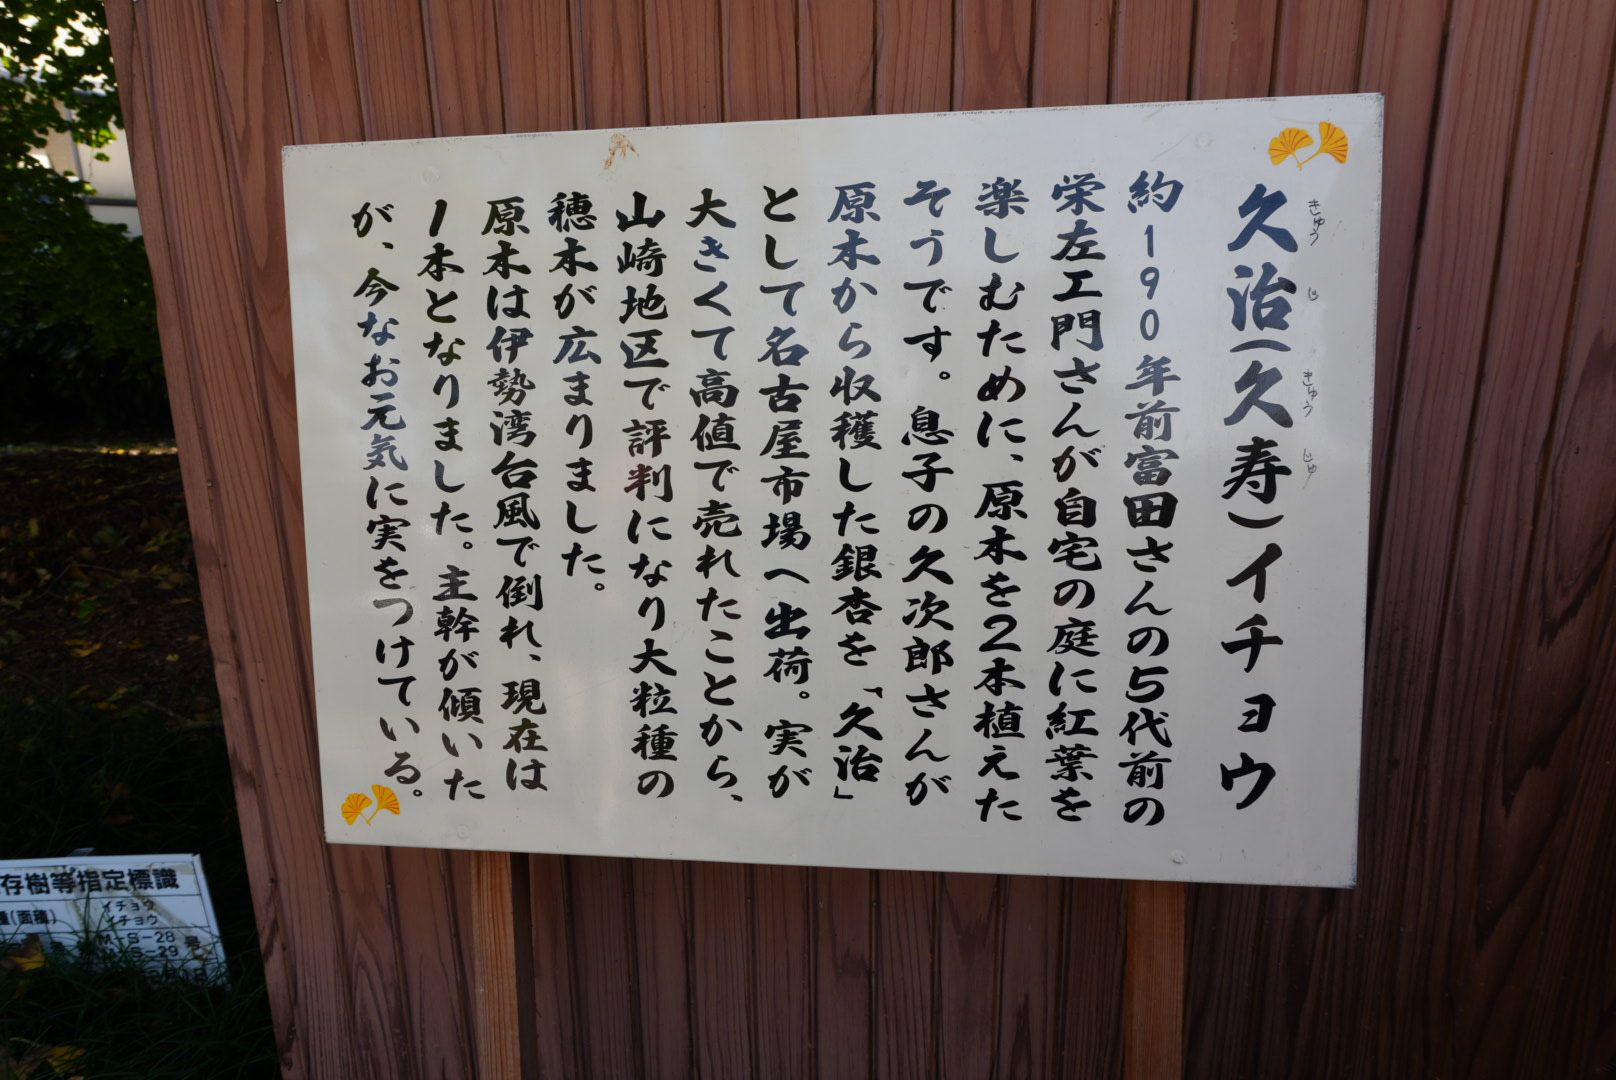 久治(久寿)イチョウ
きゅう じ きゅう じゅ
約190年前富田さんの5代前の
栄左エ門さんが自宅の庭に紅葉を
楽しむために、原木を2本植えた
そうです。息子の久次郎さんが
原木から収穫した銀杏を「久治」
として名古屋市場へ出荷。実が
大きくて高値で売れたことから、
山崎地区で評判になり大粒種の
穂木が広まりました。
原木は伊勢湾台風で倒れ、現在は
1本となりました。主幹が傾いた
が、今なお元気に実をつけている。
存樹等指定標識
(面積)
イチョウ
イチョウ
M-S-28 号
S-29